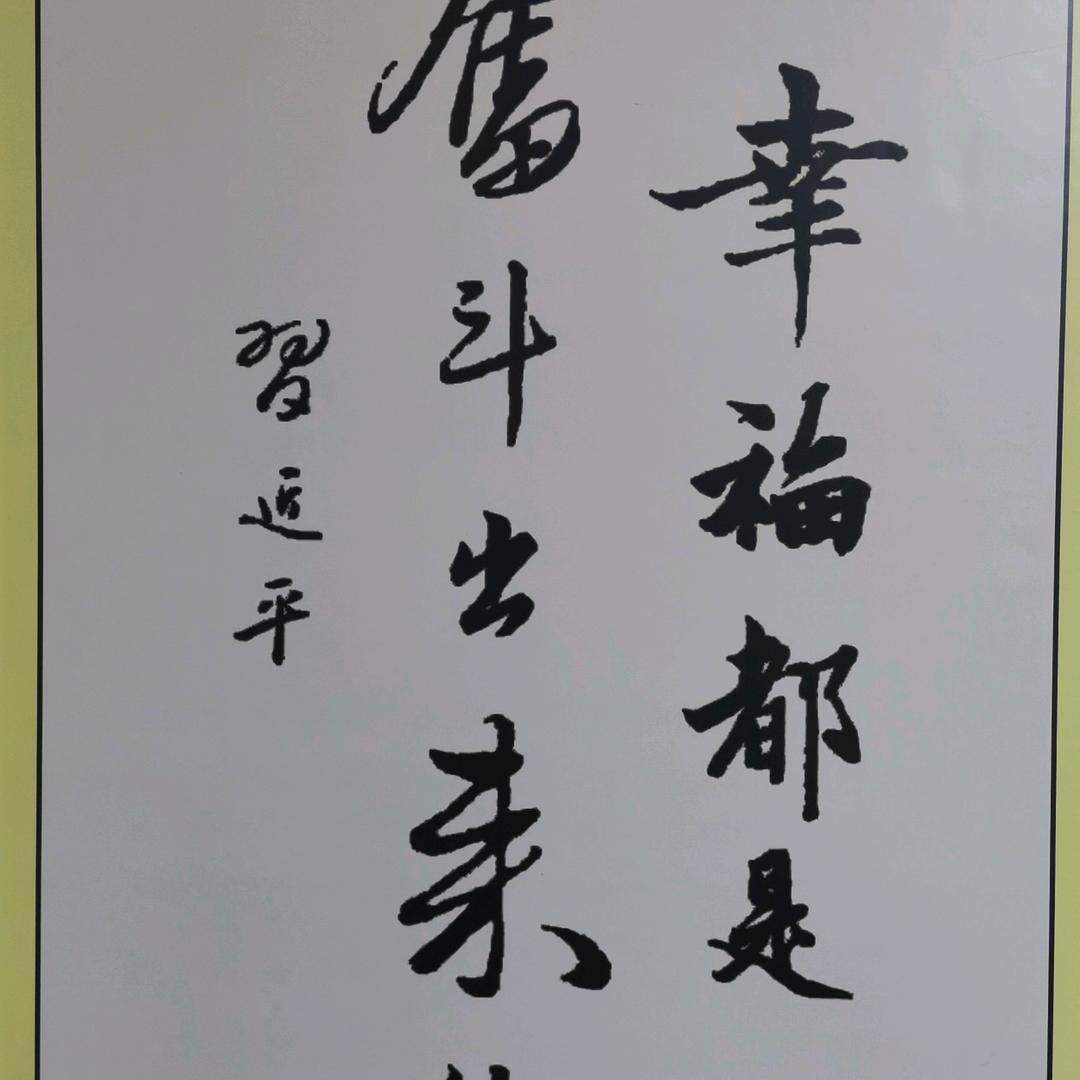 幸福都是
奮斗出来
習近平